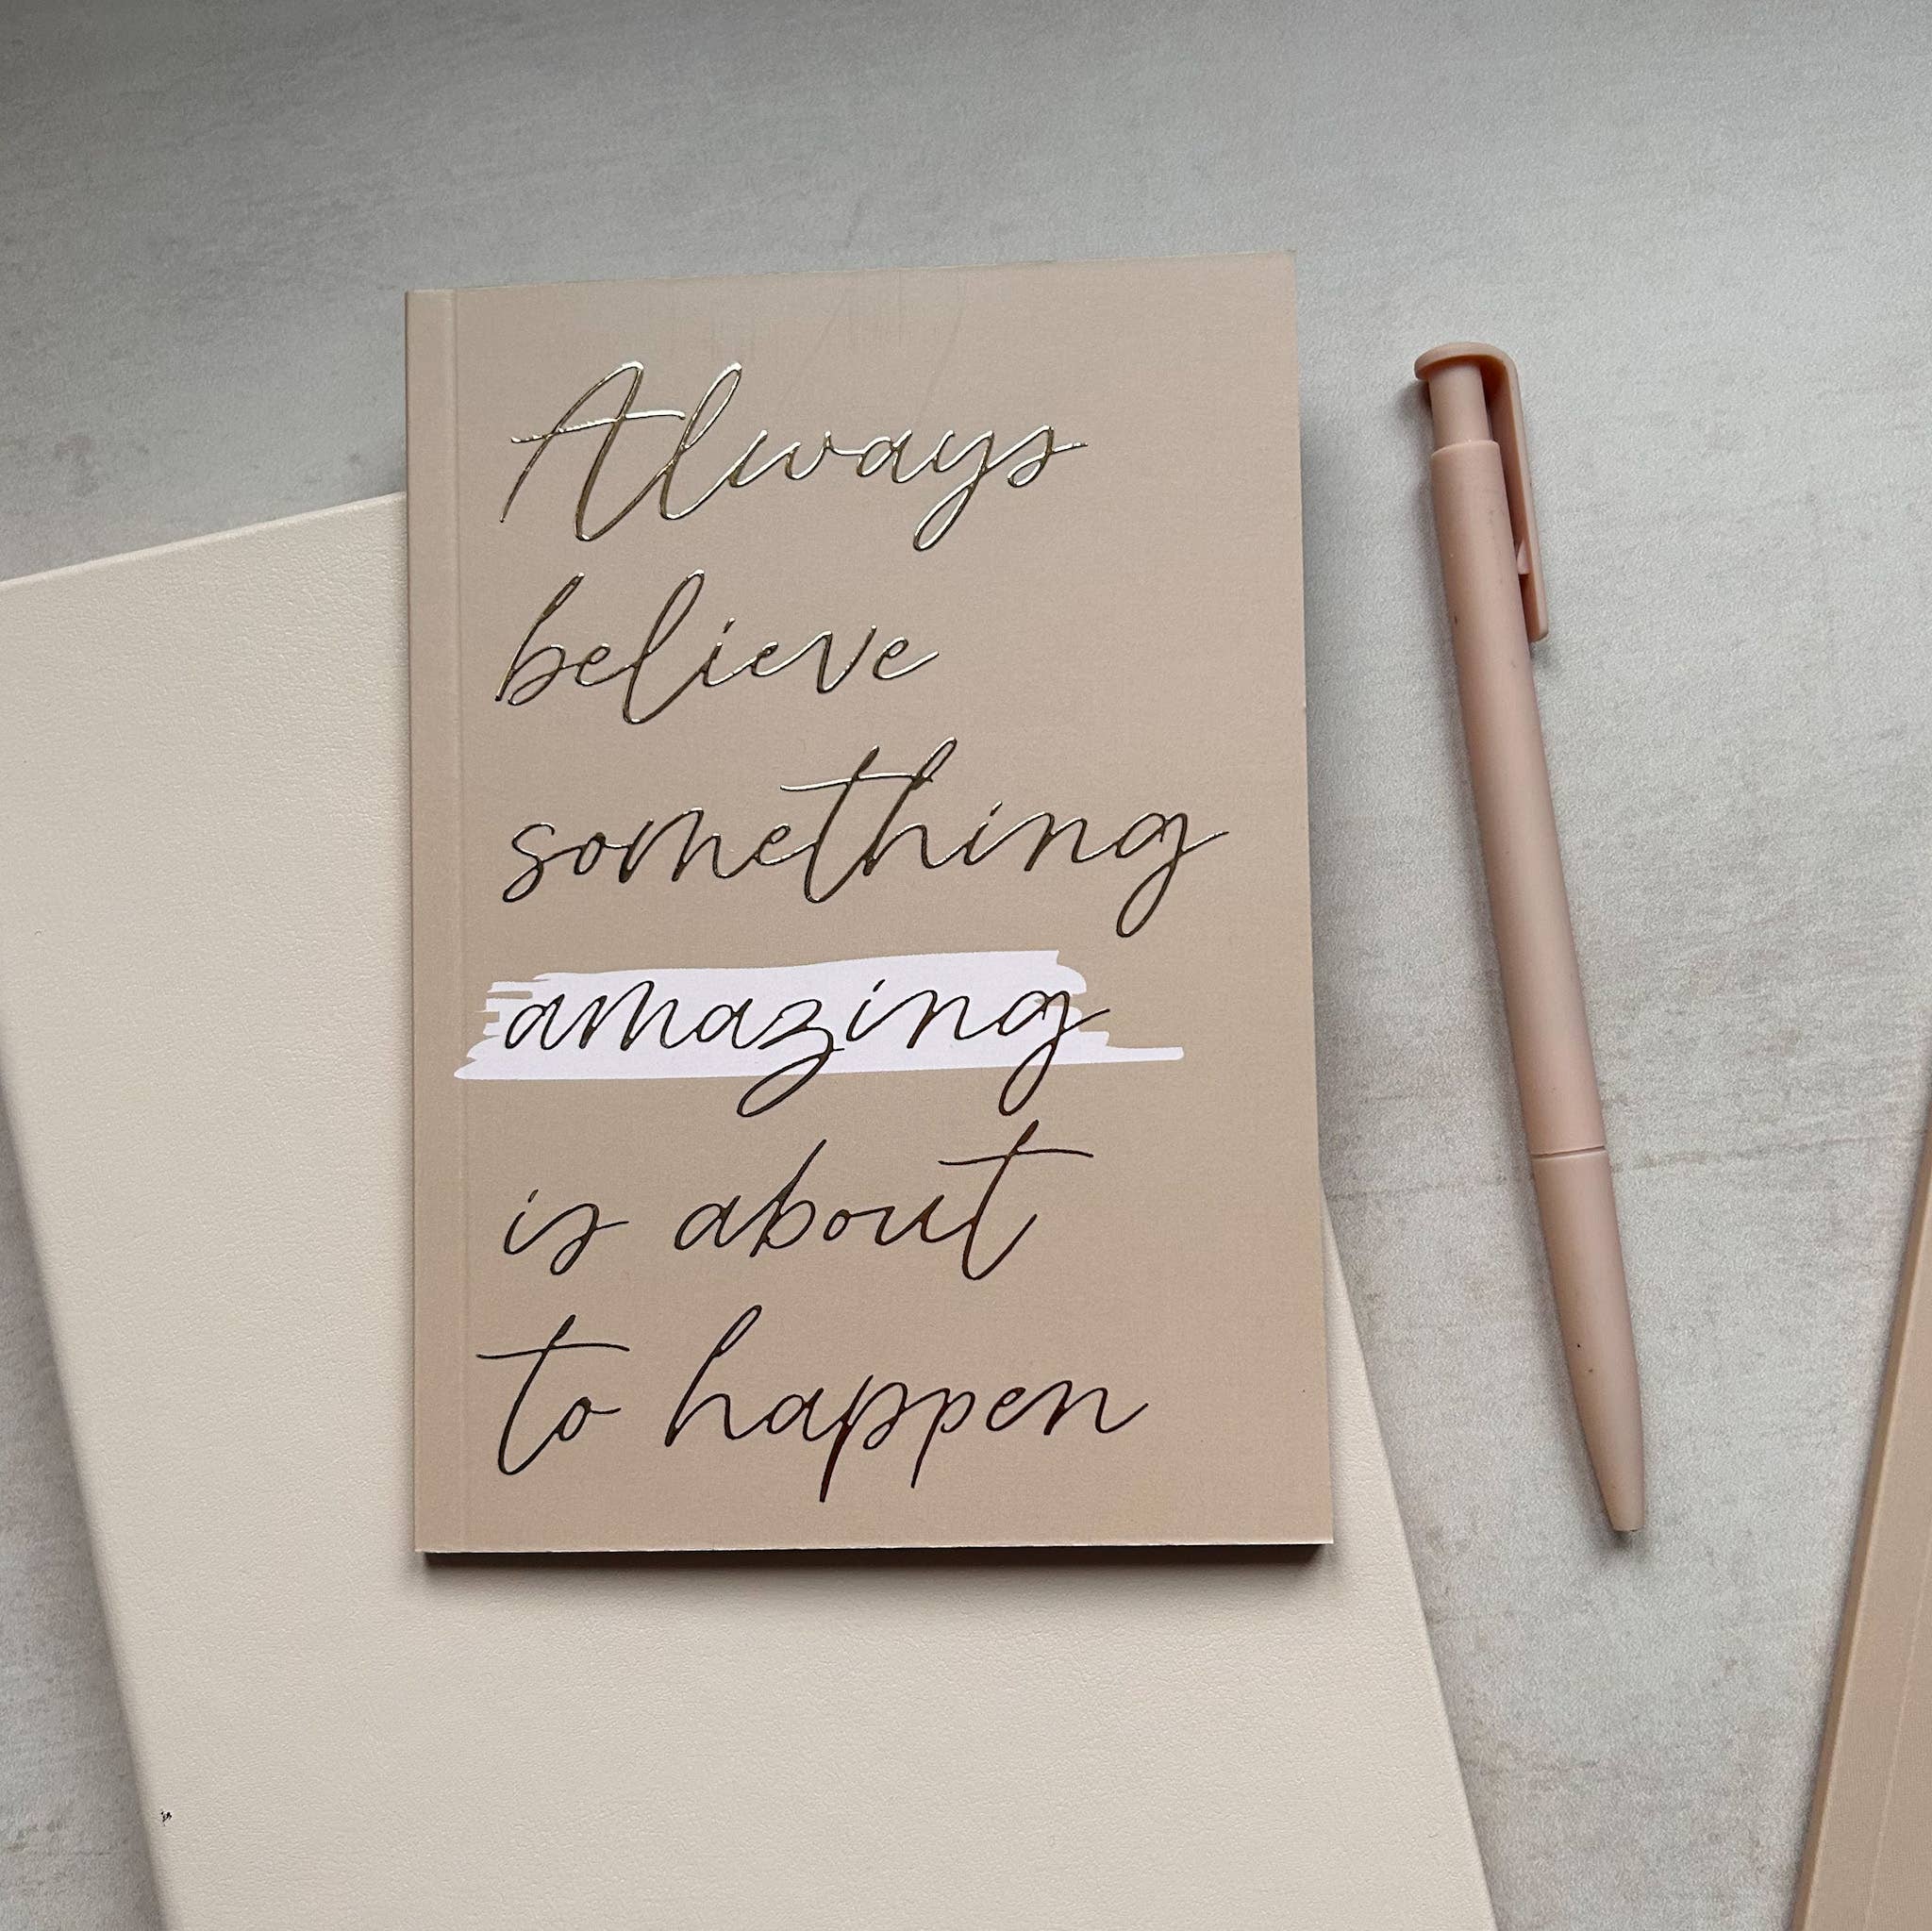 Always
believe
something
amazing
is about
to happen